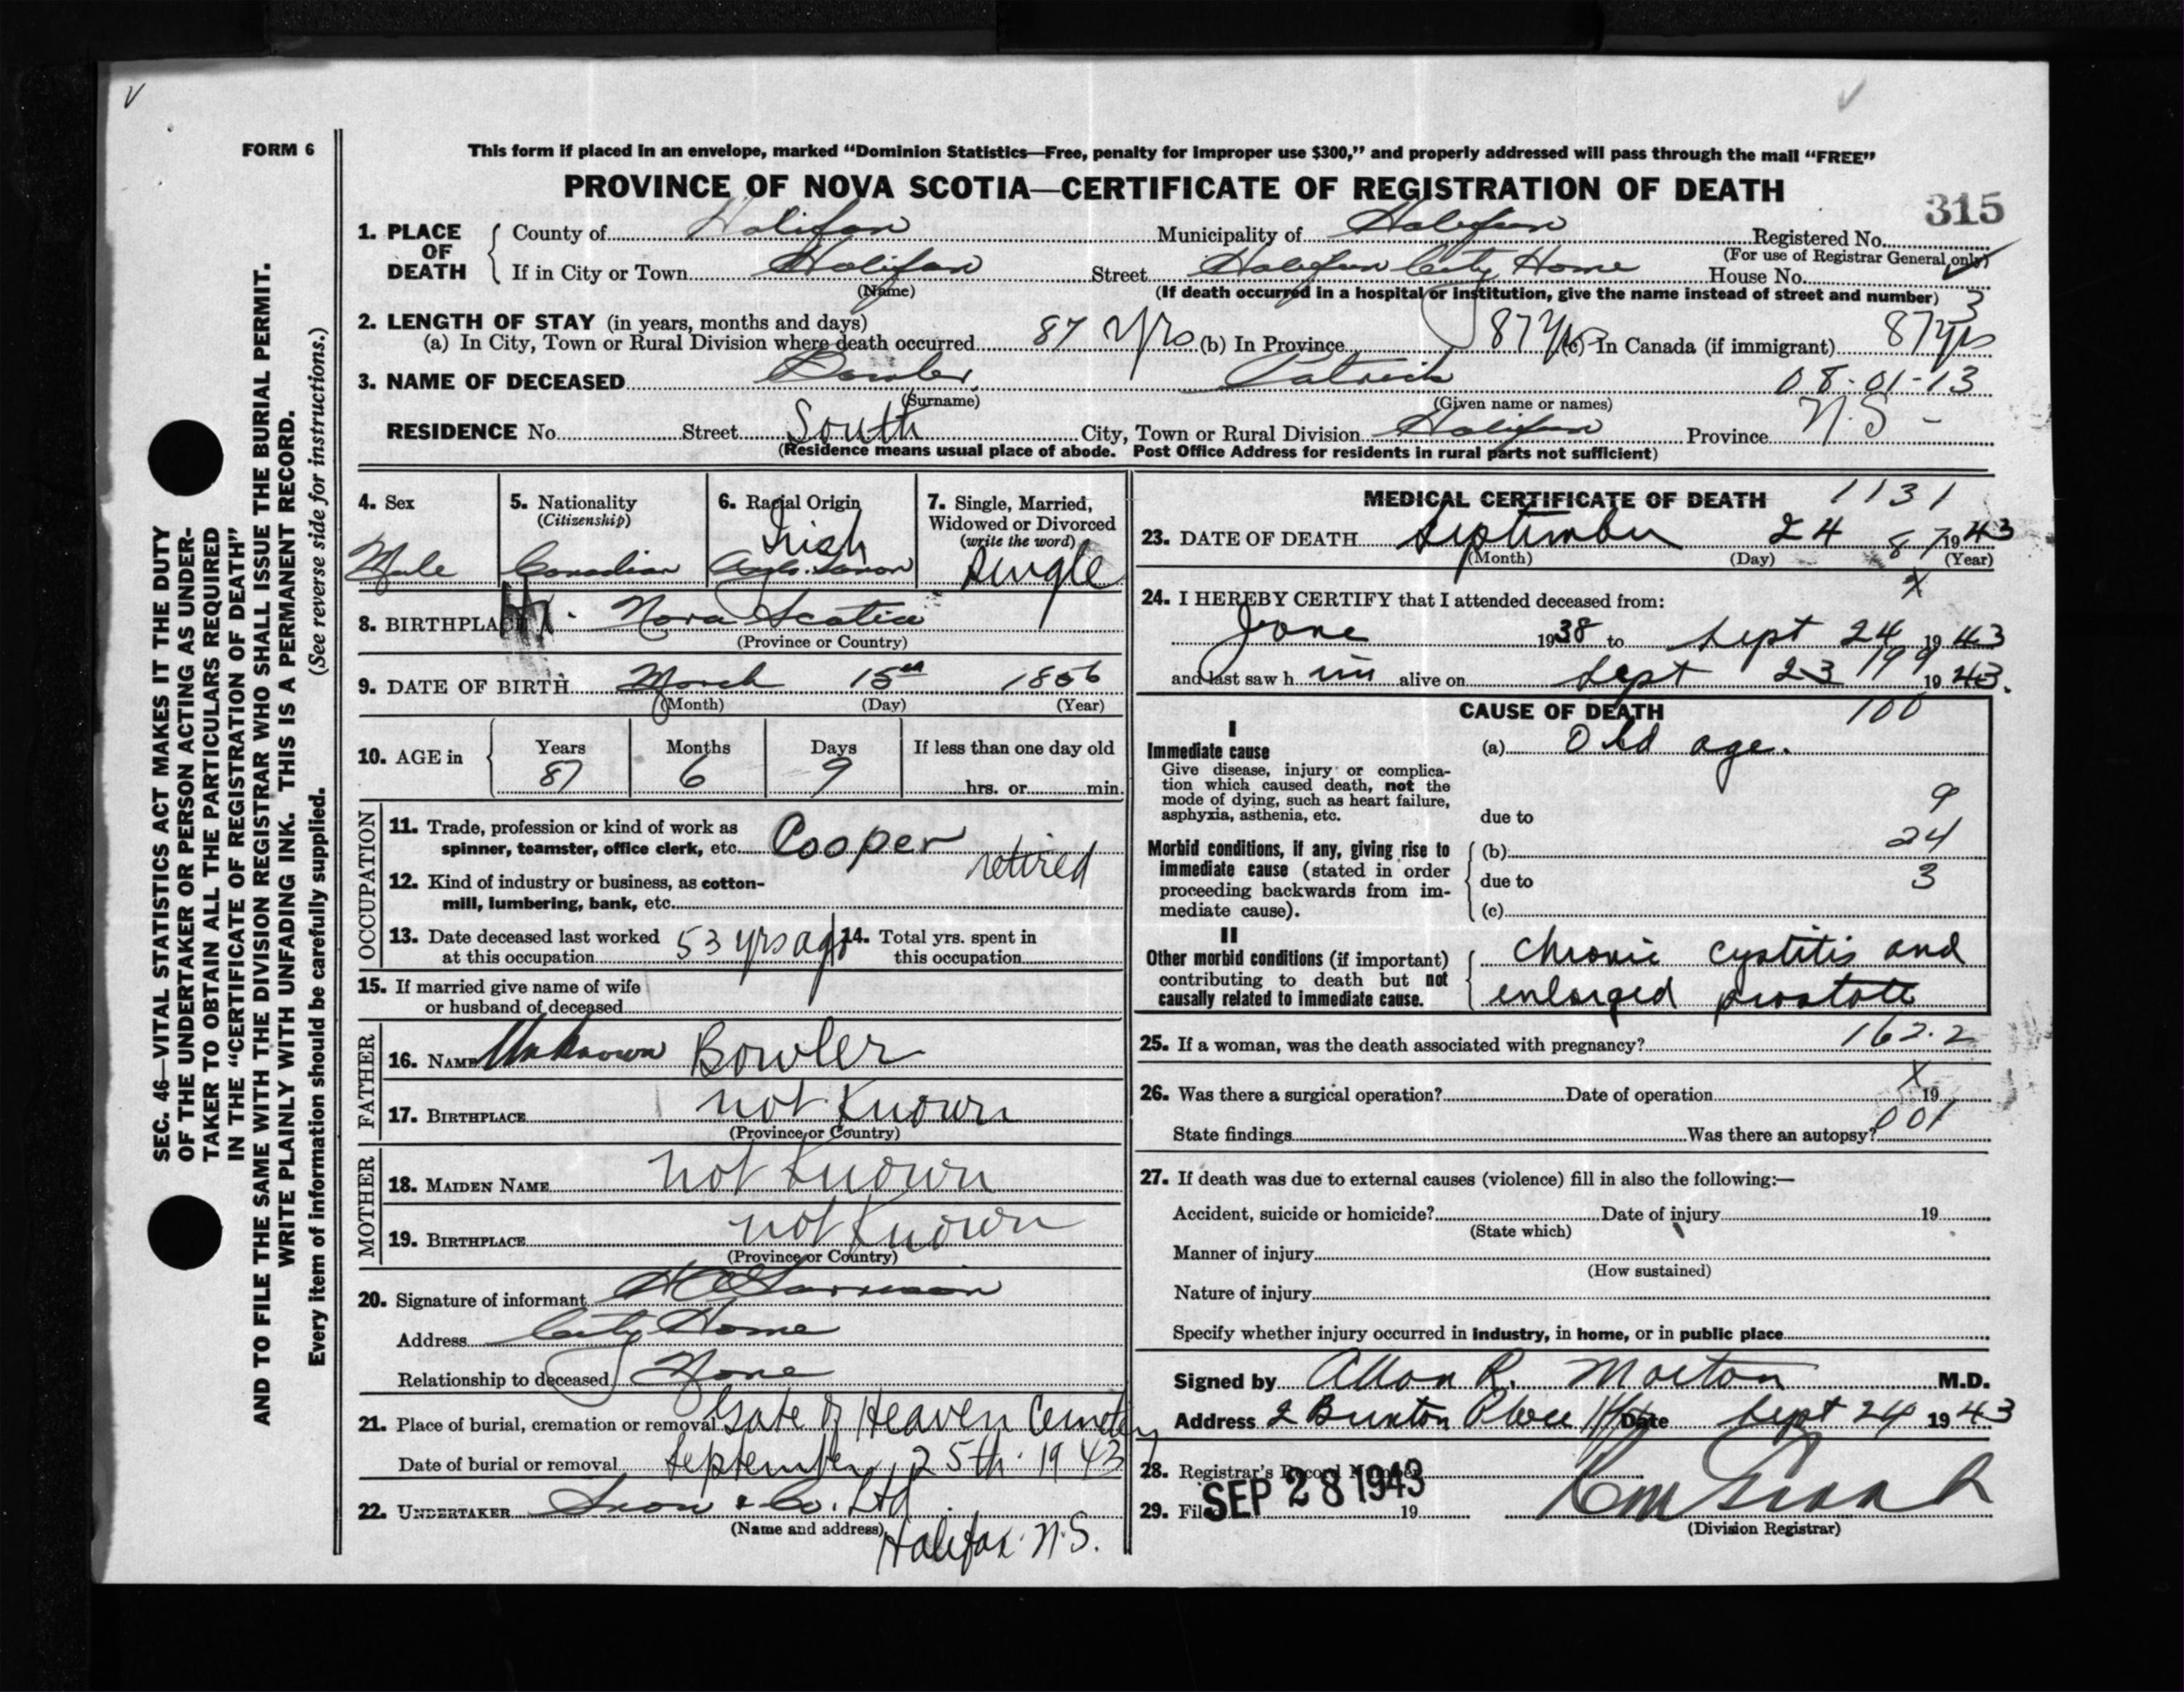 FORM 6
This form if placed in an envelope, marked “Dominion Statistics—Free, penalty for improper use $300,” and properly addressed will pass through the mail “FREE”
PROVINCE OF NOVA SCOTIA—CERTIFICATE OF REGISTRATION OF DEATH
315
1. PLACE OF DEATH
County of Halifax Municipality of Halifax Registered No.
(For use of Registrar General only)
If in City or Town Halifax Street Halifax City Home House No.
(Name) (If death occurred in a hospital or institution, give the name instead of street and number) 3
2. LENGTH OF STAY (in years, months and days)
(a) In City, Town or Rural Division where death occurred 87 yrs (b) In Province 87 yrs (c) In Canada (if immigrant) 87 yrs
3. NAME OF DECEASED Bowler, Patrick 08-01-13
(Surname) (Given name or names)
RESIDENCE No. Street South City, Town or Rural Division Halifax Province N.S -
(Residence means usual place of abode. Post Office Address for residents in rural parts not sufficient)
4. Sex
Male
5. Nationality
(Citizenship)
Canadian
6. Racial Origin
Irish
Anglo. Saxon
7. Single, Married,
Widowed or Divorced
(write the word)
Single
8. BIRTHPLACE Nova Scotia
(Province or Country)
9. DATE OF BIRTH March 15th 1856
(Month) (Day) (Year)
10. AGE in
Years Months Days If less than one day old
87 6 9 hrs. or min.
OCCUPATION
11. Trade, profession or kind of work as
spinner, teamster, office clerk, etc. Cooper
retired
12. Kind of industry or business, as cotton-
mill, lumbering, bank, etc.
13. Date deceased last worked
at this occupation 53 yrs ago
14. Total yrs. spent in
this occupation
15. If married give name of wife
or husband of deceased
FATHER
16. NAME Unknown Bowler
17. BIRTHPLACE not Known
(Province or Country)
MOTHER
18. MAIDEN NAME not Known
19. BIRTHPLACE not Known
(Province or Country)
20. Signature of informant
Address City Home
Relationship to deceased None
21. Place of burial, cremation or removal Gate of Heaven Cemetery
Date of burial or removal September, 25th. 1943
22. UNDERTAKER Snow & Co. Ltd
(Name and address) Halifax N.S.
MEDICAL CERTIFICATE OF DEATH 1131
23. DATE OF DEATH September 24 87 1943
(Month) (Day) (Year)
24. I HEREBY CERTIFY that I attended deceased from: x
June 1938 to Sept 24 1943
and last saw h im alive on Sept 23 199 1943.
CAUSE OF DEATH 100
I
Immediate cause
Give disease, injury or complica-
tion which caused death, not the
mode of dying, such as heart failure,
asphyxia, asthenia, etc.
(a) Old age.
9
due to
24
Morbid conditions, if any, giving rise to
immediate cause (stated in order
proceeding backwards from im-
mediate cause).
(b)
due to 3
(c)
II
Other morbid conditions (if important)
contributing to death but not
causally related to immediate cause.
Chronic cystitis and
enlarged prostate
25. If a woman, was the death associated with pregnancy? 162.2
26. Was there a surgical operation? Date of operation x 19
State findings Was there an autopsy? 001
27. If death was due to external causes (violence) fill in also the following:—
Accident, suicide or homicide? Date of injury 19
(State which)
Manner of injury
(How sustained)
Nature of injury
Specify whether injury occurred in industry, in home, or in public place
Signed by Allan R. Morton M.D.
Address 2 Buxton Place Hfx Date Sept 24 1943
28. Registrar's Record Number
29. Filed SEP 28 1943 19
(Division Registrar)
SEC. 46—VITAL STATISTICS ACT MAKES IT THE DUTY
OF THE UNDERTAKER OR PERSON ACTING AS UNDER-
TAKER TO OBTAIN ALL THE PARTICULARS REQUIRED
IN THE “CERTIFICATE OF REGISTRATION OF DEATH”
AND TO FILE THE SAME WITH THE DIVISION REGISTRAR WHO SHALL ISSUE THE BURIAL PERMIT.
WRITE PLAINLY WITH UNFADING INK. THIS IS A PERMANENT RECORD.
Every item of information should be carefully supplied. (See reverse side for instructions.)